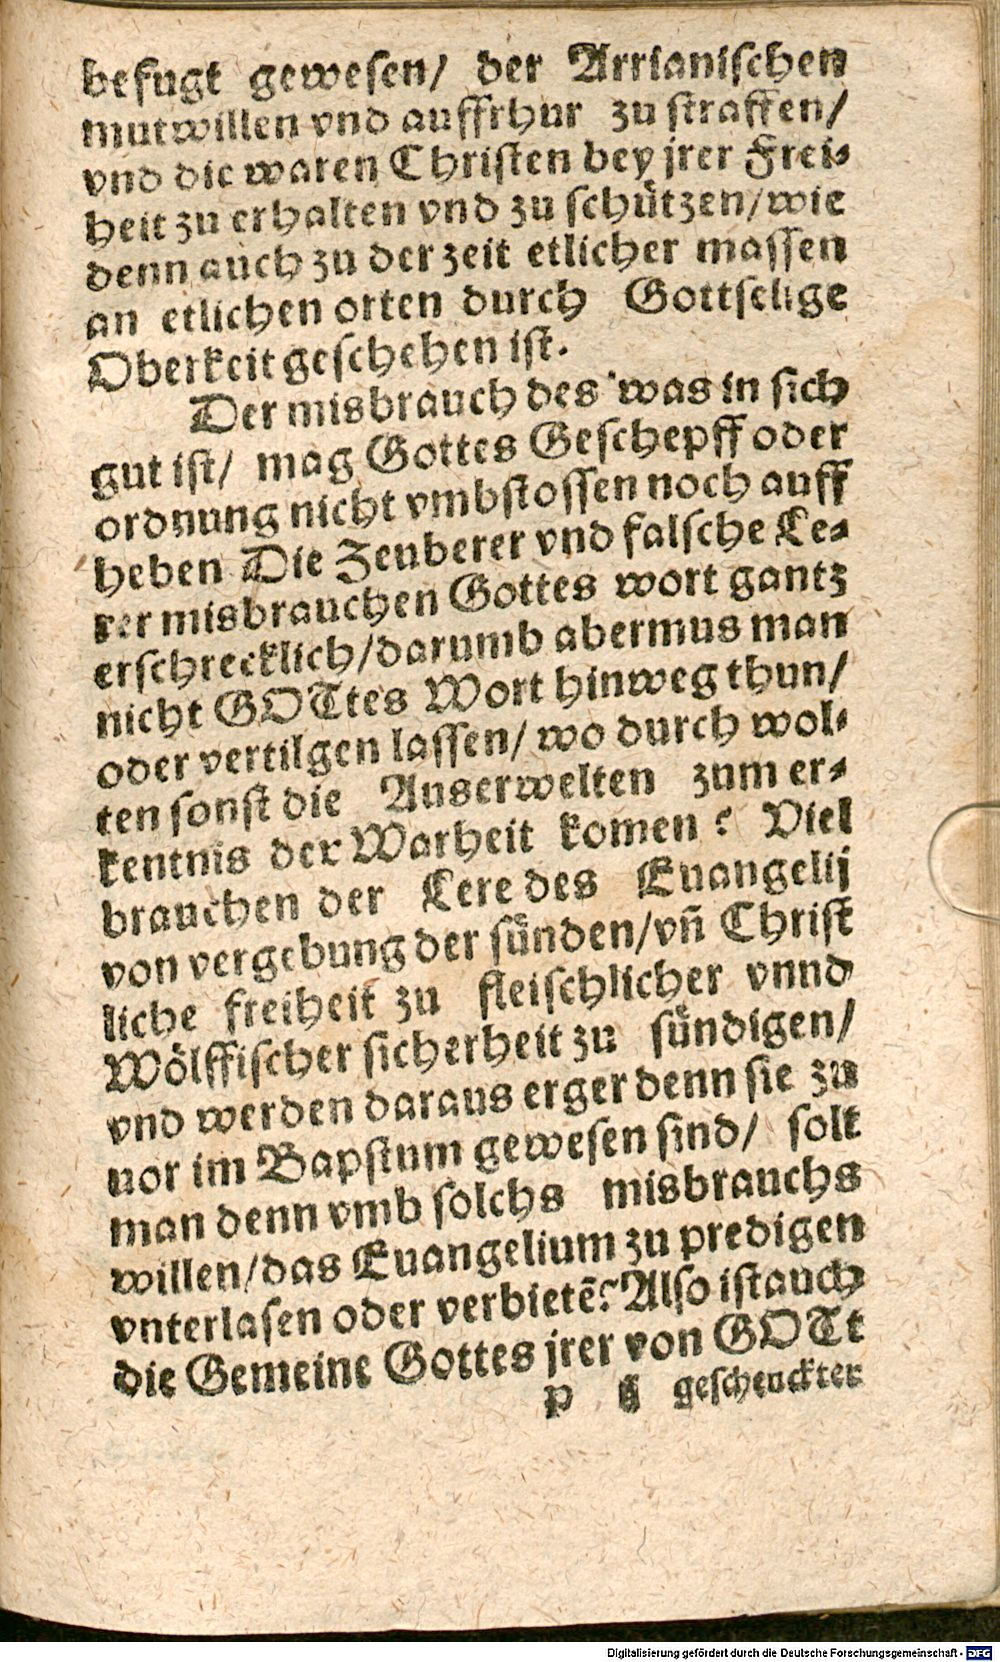 befugt gewesen/ der Arrianischen
mutwillen vnd auffrhur zu straffen/
vnd die waren Christen bey jrer Frei-
heit zu erhalten vnd zu schützen/wie
denn auch zu der zeit etlicher massen
an etlichen orten durch Gottselige
Oberkeit geschehen ist.
Der misbrauch des was in sich
gut ist/ mag Gottes Geschepff oder
ordnung nicht vmbstossen noch auff
heben Die Zeuberer vnd falsche Le-
rer misbrauchen Gottes wort gantz
erschrecklich/darumb abermus man
nicht GOTtes Wort hinweg thun/
oder vertilgen lassen/ wo durch wol-
ten sonst die Auserwelten zum er-
kentnis der Warheit komen? Viel
brauchen der Lere des Euangelij
von vergebung der sünden/vñ Christ
liche freiheit zu fleischlicher vnnd
Wölffischer sicherheit zu sündigen/
vnd werden daraus erger denn sie zu
uor im Bapstum gewesen sind/ solt
man denn vmb solchs misbrauchs
willen/das Euangelium zu predigen
vnterlasen oder verbietẽ? Also ist auch
die Gemeine Gottes jrer von GOTt
p geschenckter
Digitalisierung gefördert durch die Deutsche Forschungsgemeinschaft - DFG